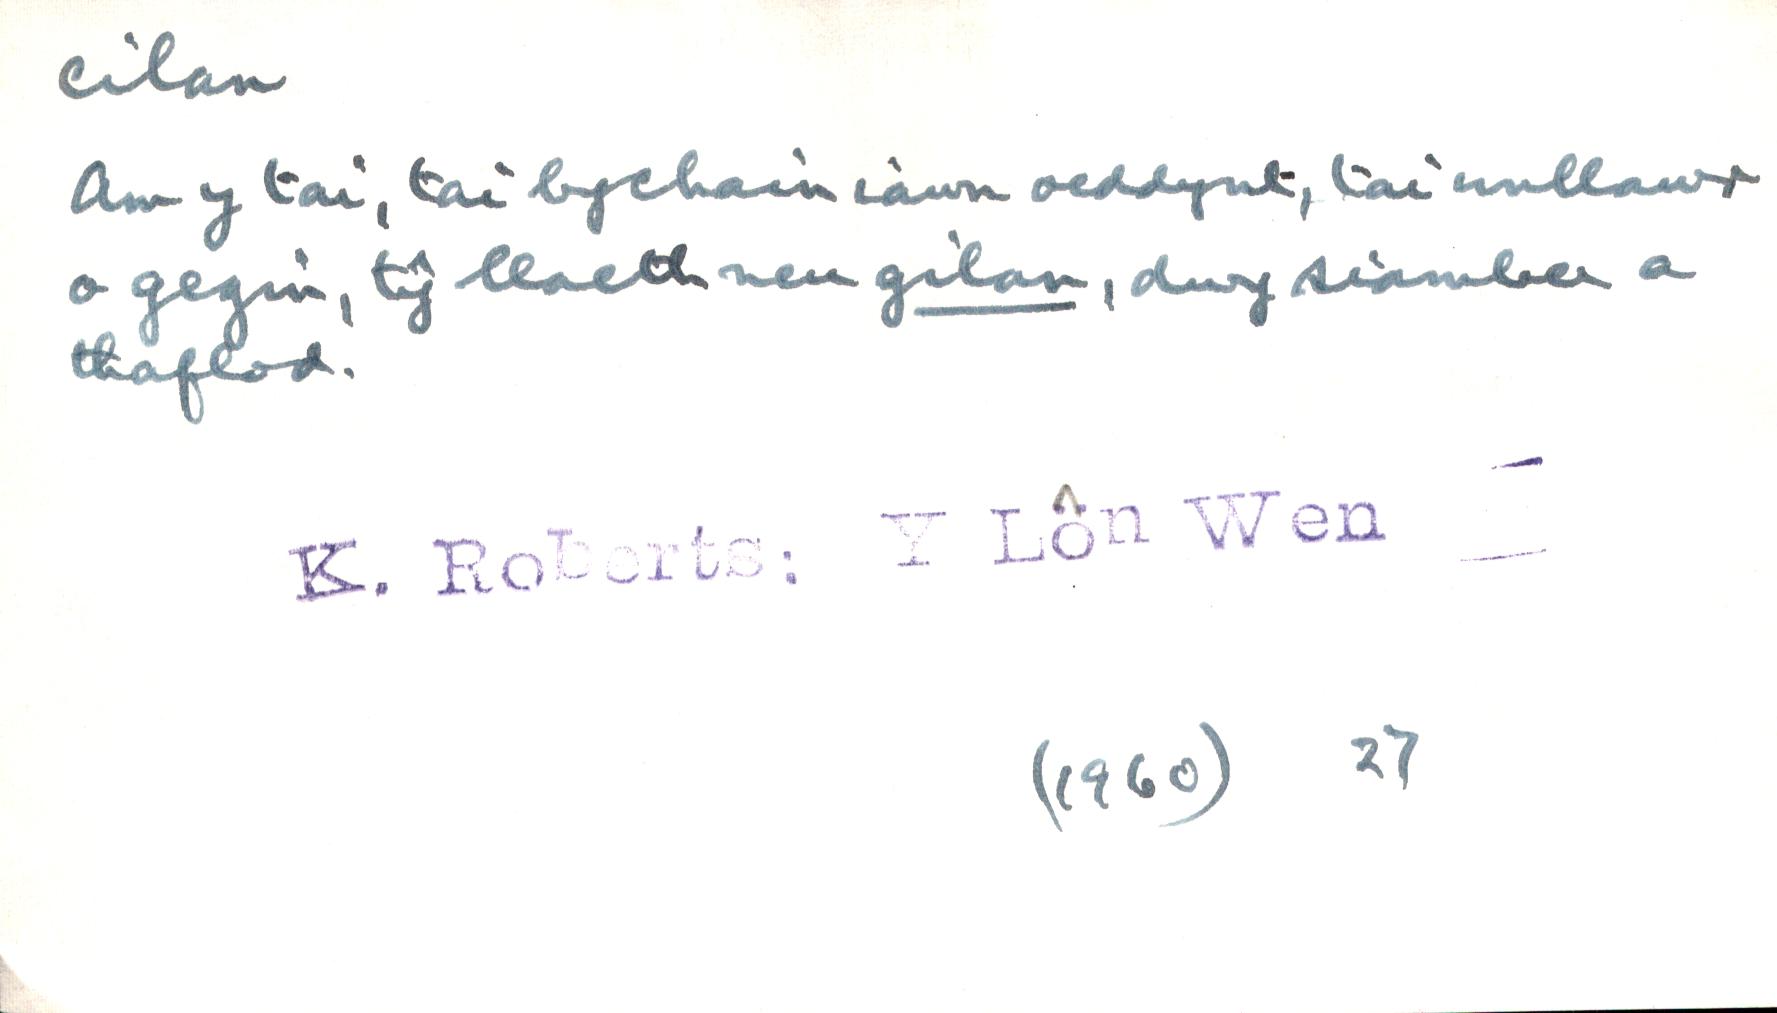 cilan
Am y tai, tai bychain iawn oeddynt, tai unllawr
o gegin, tŷ llaeth neu gilan, dwy siamber a
thaflod.
K. Roberts: Y Lôn Wen
(1960) 27